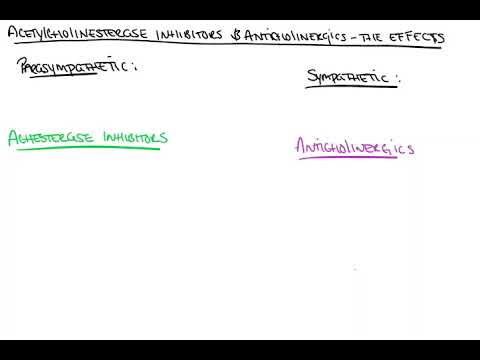 ACETYLCHOLINESTERASE INHIBITORS & ANTICHOLINERGICS - THE EFFECTS
PARASYMPATHETIC:
SYMPATHETIC:
ACHESTERASE INHIBITORS
ANTICHOLINERGICS